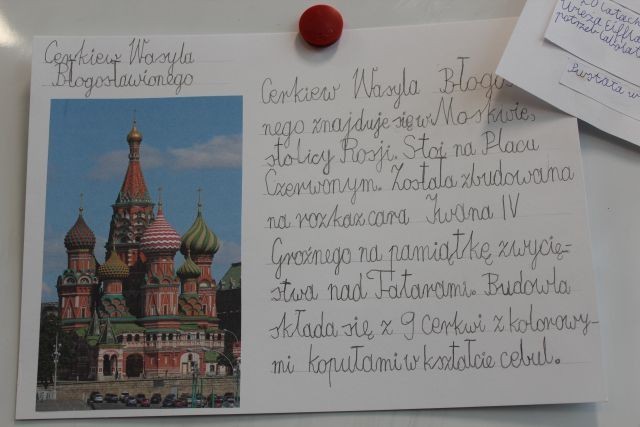 Cerkiew Wasyla
Błogosławionego
Cerkiew Wasyla Błogo
nego znajduje się w Moskwie,
stolicy Rosji. Stoi na Placu
Czerwonym. Została zbudowana
na rozkaz cara Iwana IV
Groźnego na pamiątkę zwycię-
stwa nad Tatarami. Budowla
składa się z 9 cerkwi z kolorowy-
mi kopułami w kształcie cebul.
Wieża Eiffla